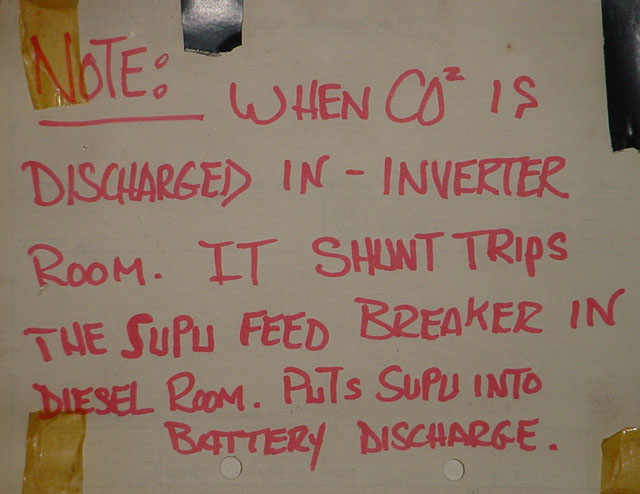 NOTE: WHEN CO² IS
DISCHARGED IN - INVERTER
ROOM. IT SHUNT TRIPS
THE SUPU FEED BREAKER IN
DIESEL ROOM. PUTS SUPU INTO
BATTERY DISCHARGE.